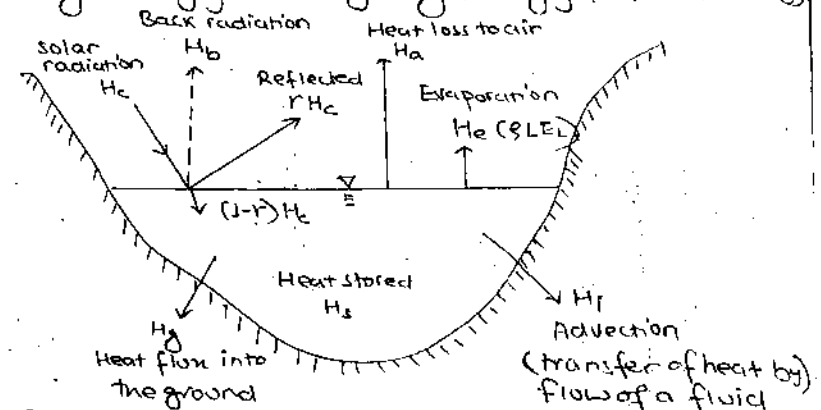 Back radiation
H_b
Heat loss to air
H_a
solar
radiation
H_c
Reflected
rH_c
Evaporation
H_e (ρLE_L)
(1-r)H_c
Heat stored
H_s
H_g
Heat flux into
the ground
H_i
Advection
(transfer of heat by)
flow of a fluid